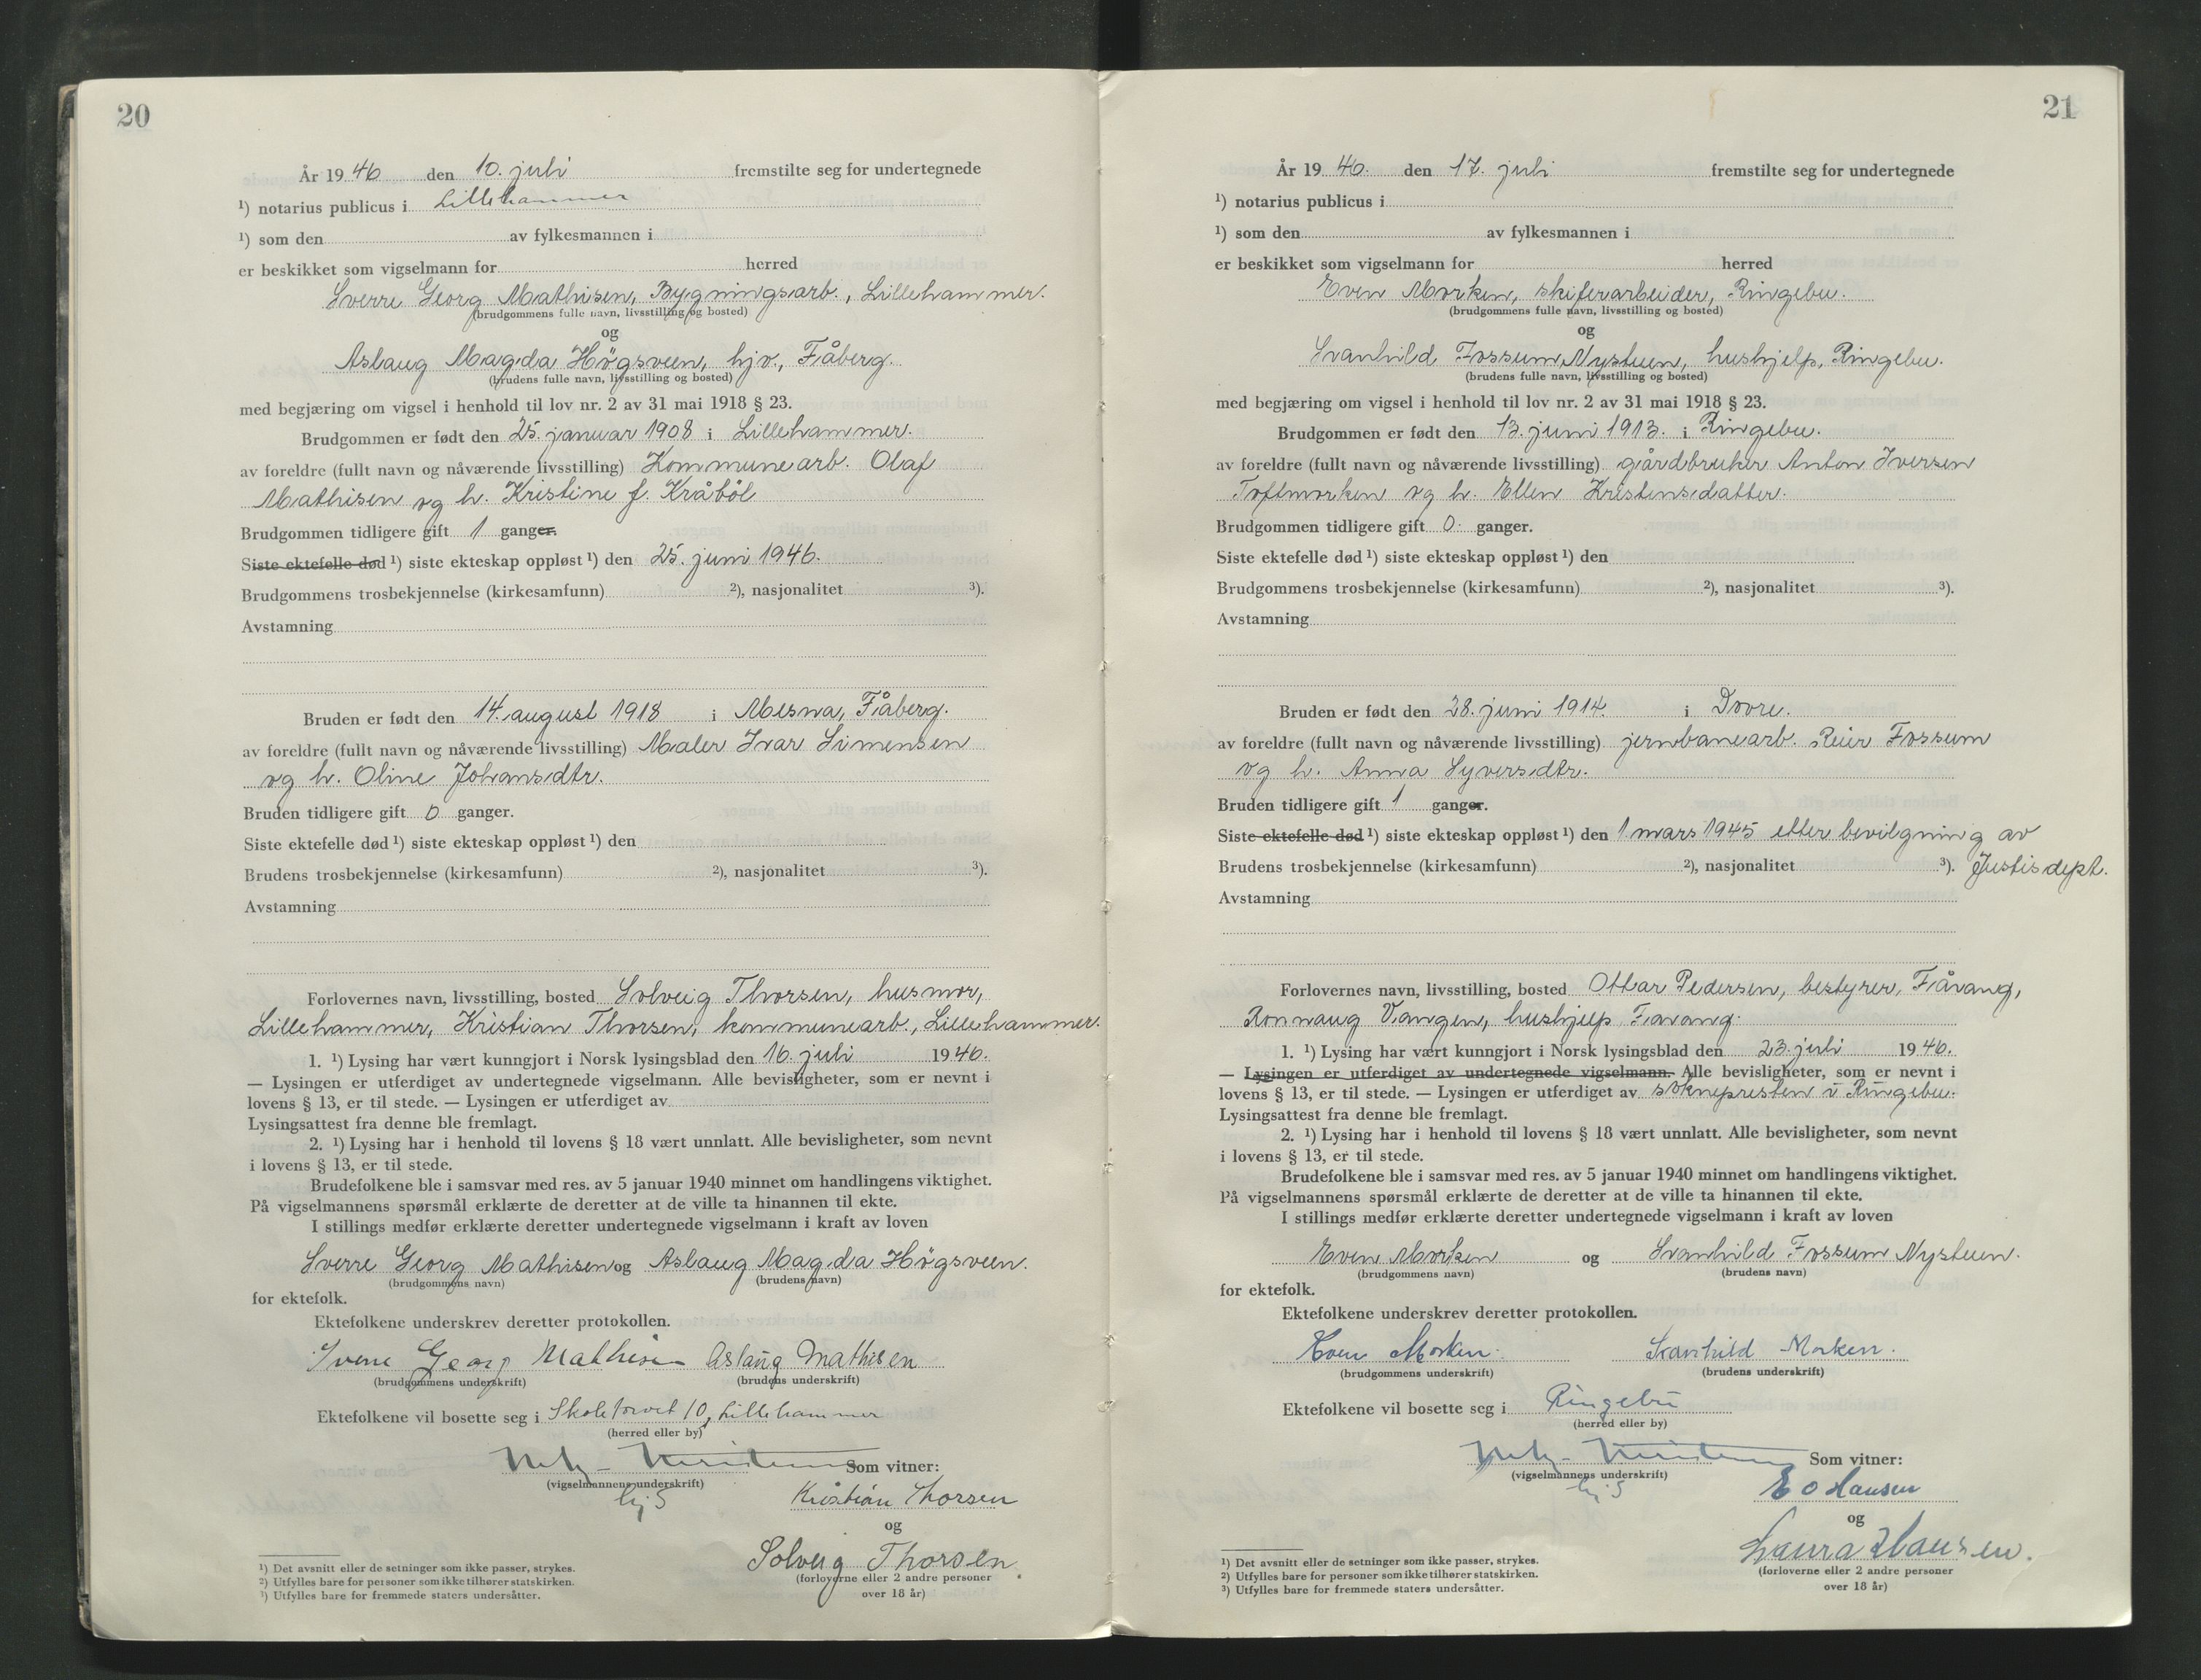 20
År 1946 den 10. juli fremstilte seg for undertegnede
¹) notarius publicus i Lillehammer
¹) som den av fylkesmannen i
er beskikket som vigselmann for herred
Sverre Georg Mathisen, Bygningsarb., Lillehammer.
(brudgommens fulle navn, livsstilling og bosted)
og
Aslaug Magda Högsveen, hjv., Fåberg.
(brudens fulle navn, livsstilling og bosted)
med begjæring om vigsel i henhold til lov nr. 2 av 31 mai 1918 § 23.
Brudgommen er født den 25. januar 1908 i Lillehammer.
av foreldre (fullt navn og nåværende livsstilling) Kommunearb. Olaf
Mathisen og h. Kristine f. Kråböl
Brudgommen tidligere gift 1 ganger.
Siste ektefelle død ¹) siste ekteskap oppløst ¹) den 25. juni 1946.
Brudgommens trosbekjennelse (kirkesamfunn) ²), nasjonalitet ³).
Avstamning
Bruden er født den 14. august 1918 i Mesna, Fåberg.
av foreldre (fullt navn og nåværende livsstilling) Maler Ivar Simensen
og h. Oline Johansdtr.
Bruden tidligere gift 0 ganger.
Siste ektefelle død ¹) siste ekteskap oppløst ¹) den
Brudens trosbekjennelse (kirkesamfunn) ²), nasjonalitet ³).
Avstamning
Forlovernes navn, livsstilling, bosted Solveig Thorsen, husmor,
Lillehammer, Kristian Thorsen, kommunearb., Lillehammer.
1. ¹) Lysing har vært kunngjort i Norsk lysingsblad den 16. juli 1946.
— Lysingen er utferdiget av undertegnede vigselmann. Alle bevisligheter, som er nevnt i
lovens § 13, er til stede. — Lysingen er utferdiget av
Lysingsattest fra denne ble fremlagt.
2. ¹) Lysing har i henhold til lovens § 18 vært unnlatt. Alle bevisligheter, som nevnt
i lovens § 13, er til stede.
Brudefolkene ble i samsvar med res. av 5 januar 1940 minnet om handlingens viktighet.
På vigselmannens spørsmål erklærte de deretter at de ville ta hinannen til ekte.
I stillings medfør erklærte deretter undertegnede vigselmann i kraft av loven
Sverre Georg Mathisen og Aslaug Magda Högsveen.
(brudgommens navn) (brudens navn)
for ektefolk.
Ektefolkene underskrev deretter protokollen.
Sverre Georg Mathisen Aslaug Mathisen
(brudgommens underskrift) (brudens underskrift)
Ektefolkene vil bosette seg i Skoletorvet 10, Lillehammer
(herred eller by)
Som vitner:
(vigselmannens underskrift)
Kristian Thorsen
og
Solveig Thorsen.
(forloverne eller 2 andre personer
over 18 år)
¹) Det avsnitt eller de setninger som ikke passer, strykes.
²) Utfylles bare for personer som ikke tilhører statskirken.
³) Utfylles bare for fremmede staters undersåtter.
21
År 1946. den 17. juli fremstilte seg for undertegnede
¹) notarius publicus i
¹) som den av fylkesmannen i
er beskikket som vigselmann for herred
Even Morken, skiferarbeider, Ringebu.
(brudgommens fulle navn, livsstilling og bosted)
og
Svanhild Fossum Nystuen, hushjelp, Ringebu.
(brudens fulle navn, livsstilling og bosted)
med begjæring om vigsel i henhold til lov nr. 2 av 31 mai 1918 § 23.
Brudgommen er født den 13. juni 1913. i Ringebu.
av foreldre (fullt navn og nåværende livsstilling) gårdbruker Anton Iversen
Toftmorken og h. Ellen Kristensdatter.
Brudgommen tidligere gift 0. ganger.
Siste ektefelle død ¹) siste ekteskap oppløst ¹) den
Brudgommens trosbekjennelse (kirkesamfunn) ²), nasjonalitet ³).
Avstamning
Bruden er født den 28. juni 1914. i Dovre.
av foreldre (fullt navn og nåværende livsstilling) jernbanearb. Reier Fossum
og h. Anna Syversdtr.
Bruden tidligere gift 1 ganger.
Siste ektefelle død ¹) siste ekteskap oppløst ¹) den 1 mars 1945 etter bevilgning av
Brudens trosbekjennelse (kirkesamfunn) ²), nasjonalitet ³). Justisdept.
Avstamning
Forlovernes navn, livsstilling, bosted Ottar Pedersen, bestyrer, Fåvang,
Ronnaug Vangen, hushjelp Favang.
1. ¹) Lysing har vært kunngjort i Norsk lysingsblad den 23. juli 1946.
— Lysingen er utferdiget av undertegnede vigselmann. Alle bevisligheter, som er nevnt i
lovens § 13, er til stede. — Lysingen er utferdiget av soknepresten i Ringebu.
Lysingsattest fra denne ble fremlagt.
2. ¹) Lysing har i henhold til lovens § 18 vært unnlatt. Alle bevisligheter, som nevnt
i lovens § 13, er til stede.
Brudefolkene ble i samsvar med res. av 5 januar 1940 minnet om handlingens viktighet.
På vigselmannens spørsmål erklærte de deretter at de ville ta hinannen til ekte.
I stillings medfør erklærte deretter undertegnede vigselmann i kraft av loven
Even Morken og Svanhild Fossum Nystuen.
(brudgommens navn) (brudens navn)
for ektefolk.
Ektefolkene underskrev deretter protokollen.
Even Morken. Svanhild Morken.
(brudgommens underskrift) (brudens underskrift)
Ektefolkene vil bosette seg i Ringebu
(herred eller by)
Som vitner:
(vigselmannens underskrift)
E O Hansen
og
Laura Hansen.
(forloverne eller 2 andre personer
over 18 år)
¹) Det avsnitt eller de setninger som ikke passer, strykes.
²) Utfylles bare for personer som ikke tilhører statskirken.
³) Utfylles bare for fremmede staters undersåtter.